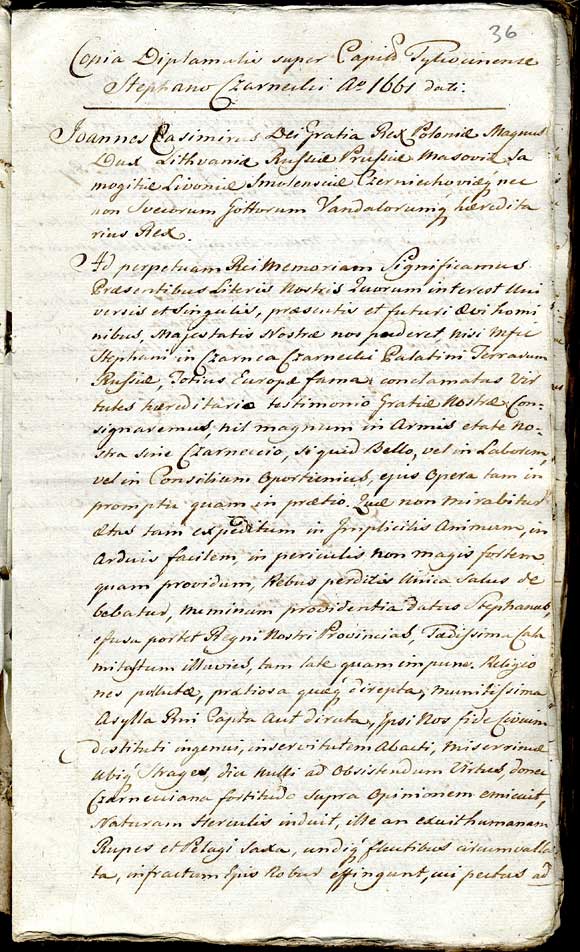 36
Copia Diplamatis super Capitł Tykocinense
Stephano Czarnecki Aº 1661 dati.
Joannes Casimirus Dei Gratia Rex Poloniæ Magnus
Dux Lithvaniæ Russiæ Prussiæ Masoviæ Sa
mogitiæ Livoniæ Smolensciæ Czerniechoviæq́ nec
non Svecorum Gottorum Vandalorumq́ hæredita
rius Rex.
Ad perpetuam Rei Memoriam Significamus
Præsentibus Literis Nostris Quorum interest Uni
versis et Singulis, præsentis et futuri ævi homi
nibus, Majestatis Nostræ nos puderet, nisi Mfci
Stephani in Czarnca Czarnecki Palatini Terrarum
Russiæ, Totius Europæ fama conclamatas Vir
tutes hæreditariæ testimonio Gratiæ Nostræ Con-
signaremus, nil magnum in Armis etate No-
stra sine Czarneccio, si quid Bello, vel in Laborem,
vel in Consilium Oportunius, ejus Opera tam in
promptu quam in prætio. Quæ non mirabitur
ætas tam expeditum in Implicitis Animum, in
Arduis facilem, in periculis non magis fortem
quam providum, Rebus perditis Unica Salus de
bebatur, Numinum providentia datus Stephanus,
efusa portet Regni Nostri Provincias, Tædissima Cala
mitatum illuvies, tam late quam impune. Religio
nes pollutæ, prætiosa quæq́ direpta, munitissima
Asylla Rni Capta Aut diruta, Ipsi Nos fide Civium
destituti ingenui, in servitutem Abacti, miserrimæ
ubiq́ Strages, diu nulli ad Obsistendum Virtus, donec
Czarneciana fortitudo Supra Opinionem emicuit,
Naturam Herculis induit, ille an exuit humanam
Rupes et Pelagi saxa, undiq́ fluctibus circumvalla
ta, infractum Ejus Robur effingunt, cui pectus ad